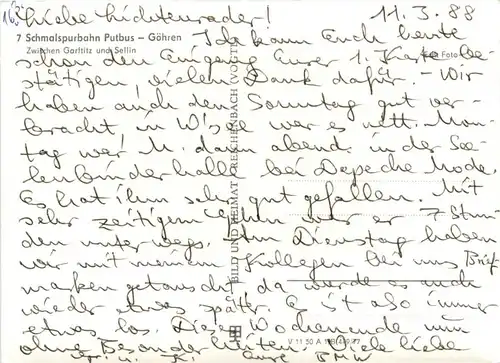 11.3.88
Liebe Lichtenrader!
7 Schmalspurbahn Putbus – Göhren
Zwischen Garftitz und Sellin
Foto
Ich kann Euch heute
schon den Eingang Eurer 1. Karte be-
stätigen, vielen Dank dafür. – Wir
haben auch den Sonntag gut ver-
bracht, in W'see war es nett. Mon-
tag war M. dann abend in der See-
lenbinderhalle bei Depeche Mode.
Es hat ihm sehr gut gefallen. Mit
sehr zeitigem war er 7 Stun-
den unterwegs. Am Dienstag haben
wir mit meinem Kollegen bei uns Brief-
marken getauscht, da wurde es auch
wieder etwas spät. Es ist also immer
etwas los. Dieses Wochenende nun
ohne Besonderheiten. Viele liebe
Eure
BILD UND HEIMAT REICHENBACH (VOGTL)
V 11 50 A 1/B